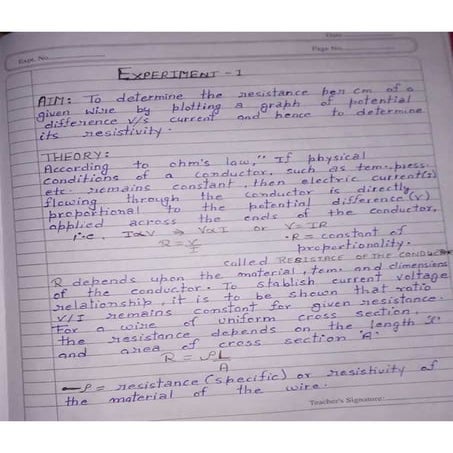 Date
Expt. No.
Page No.
EXPERIMENT - 1
AIM: To determine the resistance per cm of a
given wire by plotting a graph of potential
difference v/s current and hence to determine
its resistivity.
THEORY:
According to ohm's law, "If physical
conditions of a conductor, such as tem., press.
etc. remains constant, then electric current(I)
flowing through the conductor is directly
proportional to the potential difference (V)
applied across the ends of the conductor,
i.e. I∝V ⇒ V∝I or V=IR
R = V/I
• R = constant of
proportionality.
called RESISTACE OF THE CONDUCTOR
R depends upon the material, tem. and dimensions
of the conductor. To stablish current voltage
relationship, it is to be shown that ratio
V/I remains constant for given resistance.
For a wire of uniform cross section,
the resistance depends on the length 'l'
and area of cross section 'A'
R = ρL/A
ρ = resistance (specific) or resistivity of
the material of the wire.
Teacher's Signature: